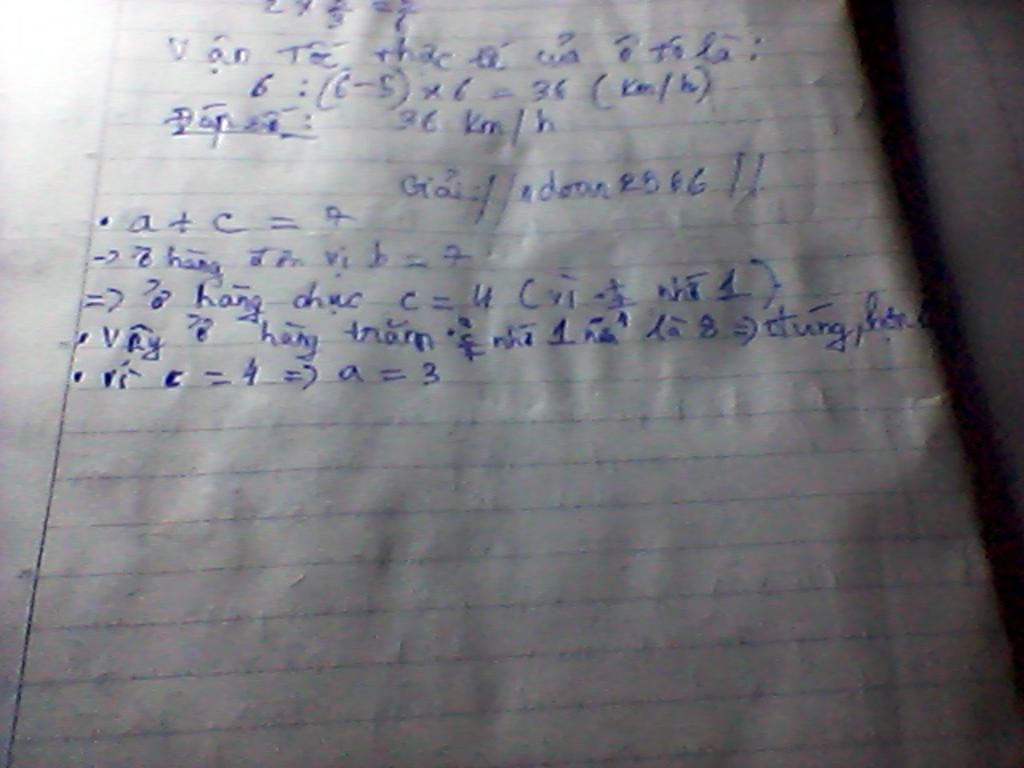 Vận Tốc thực tế của ô tô là:
6 : (6-5) x 6 = 36 (km/h)
Đáp số: 36 km/h
Giải: //
• a + c = 7
-> ở hàng đơn vị b = 7
=> ở hàng chục c = 4 (vì nhớ 1)
• Vậy ở hàng trăm nhớ 1 nữa là 8 => đúng,
• vì c = 4 => a = 3